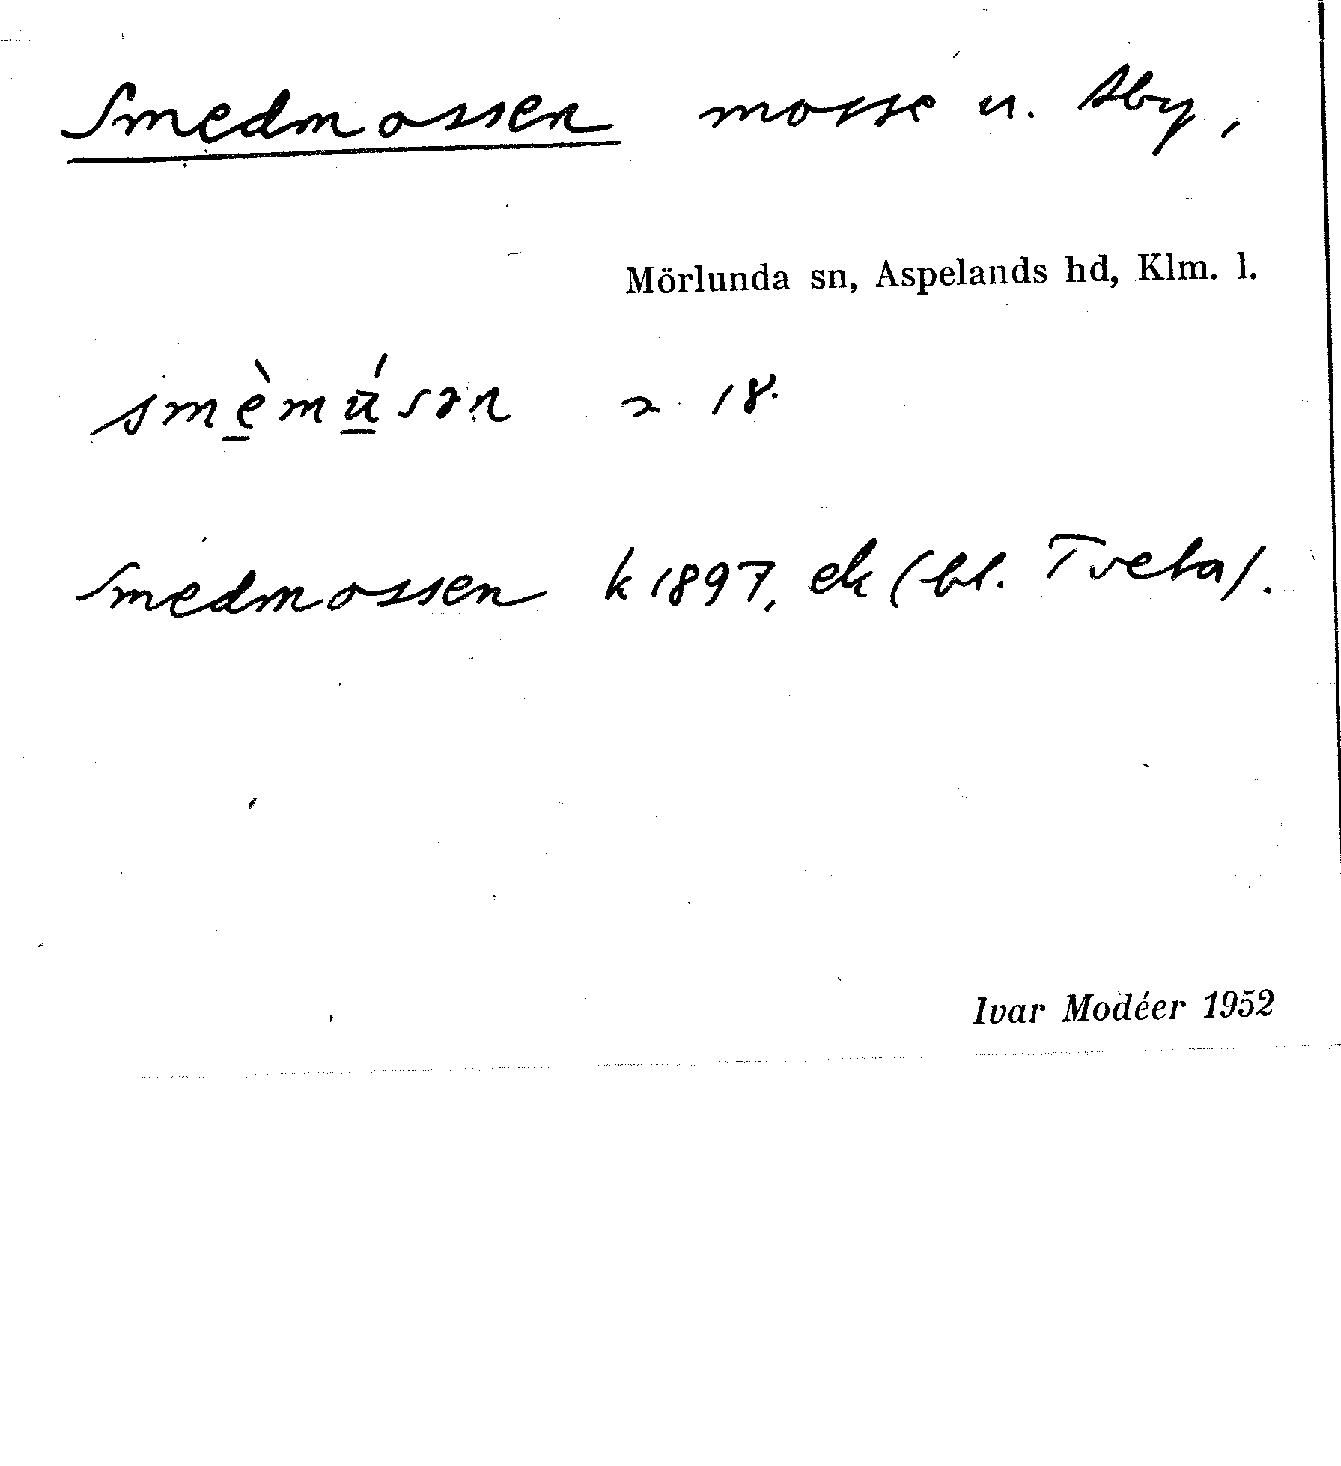 Smedmossen mosse u. Åby,
Mörlunda sn, Aspelands hd, Klm. l.
smèmúsən 18.
Smedmossen k 1897, ek (bl. Tveta).
Ivar Modéer 1952